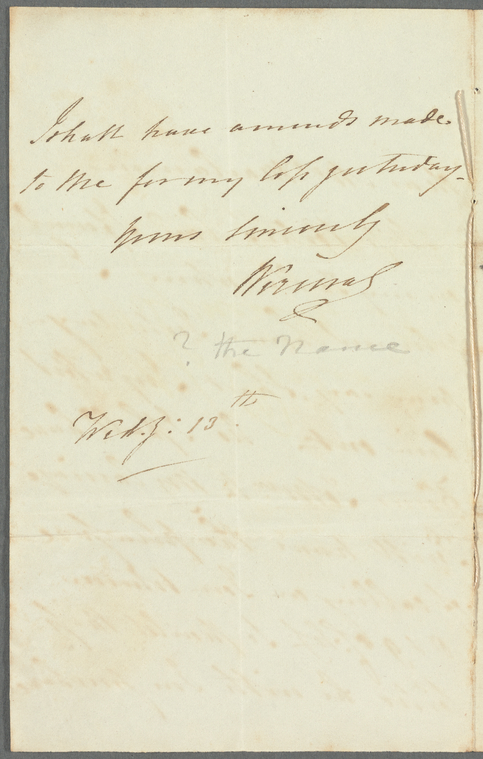 I shall have amends made
to me for my loss yesterday.
Yours sincerely
? the Name
Wedy: 13th